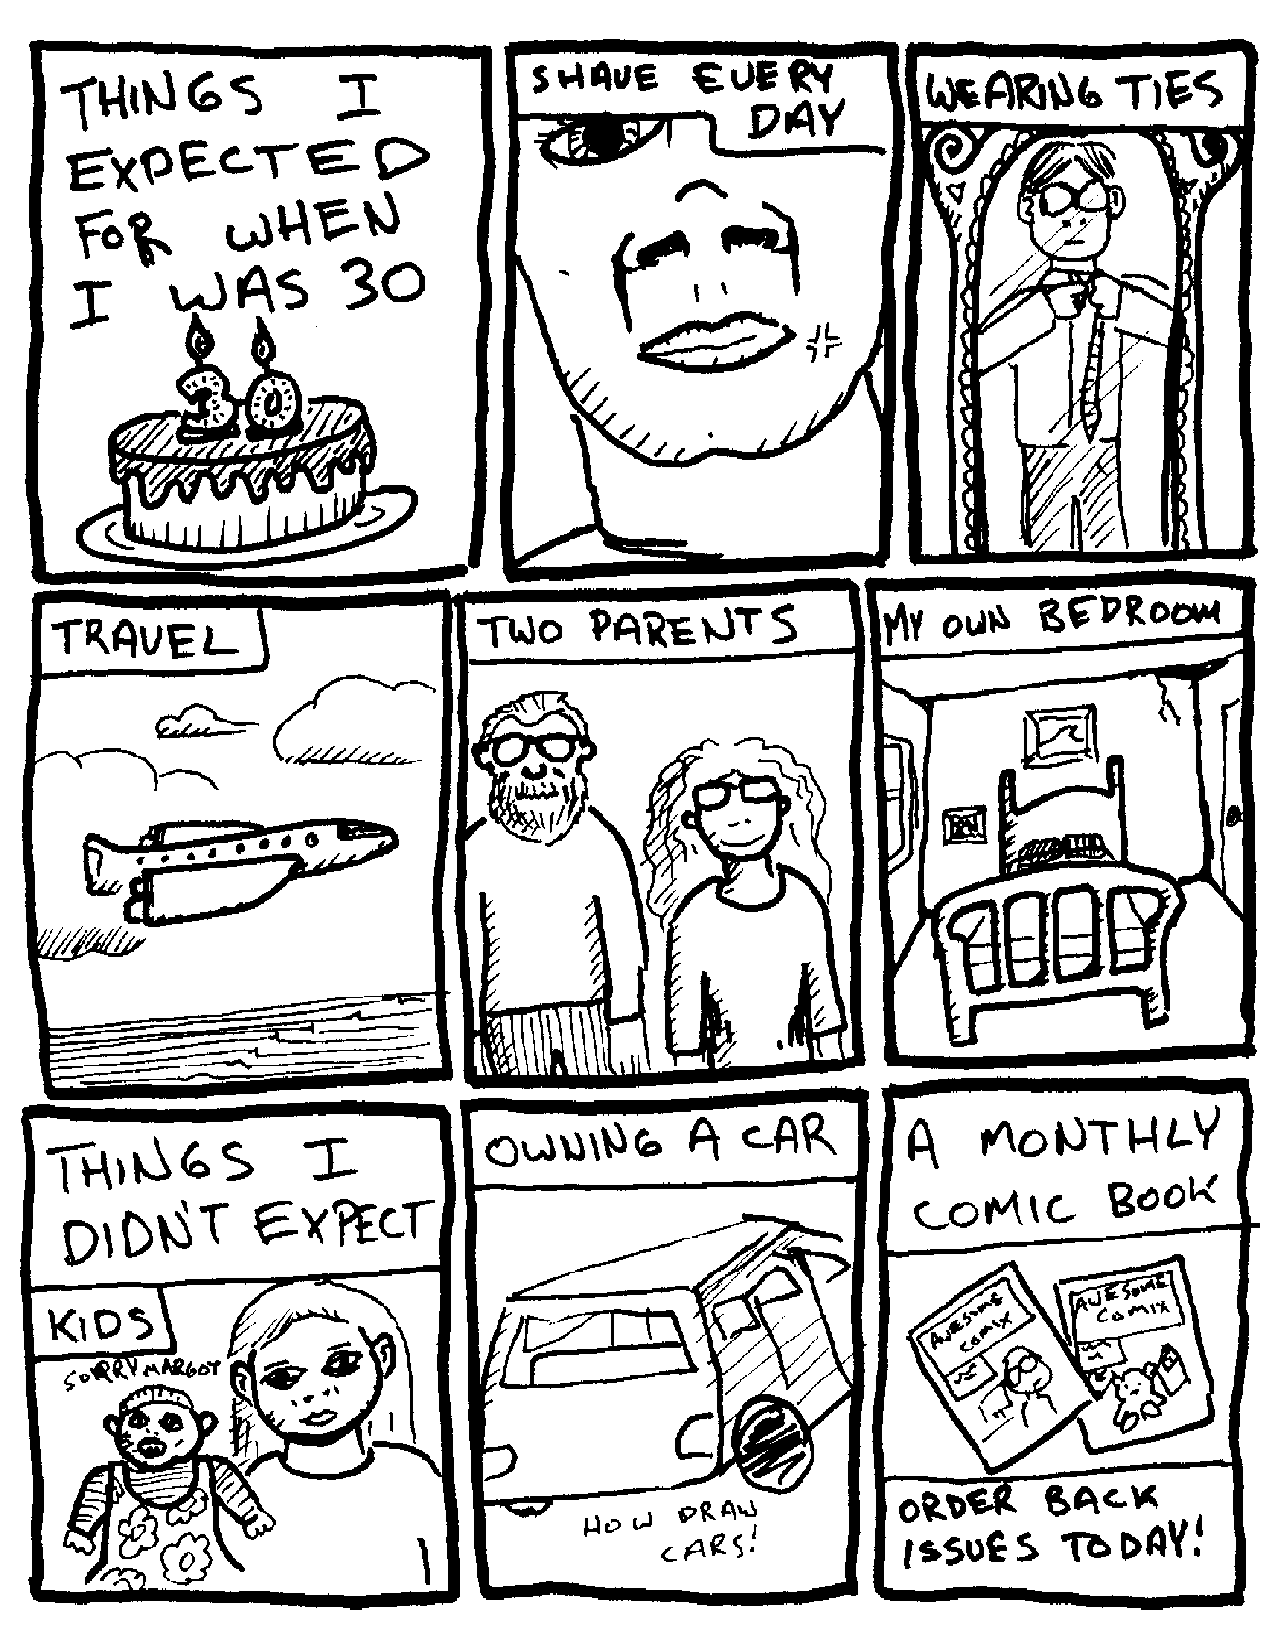 THINGS I
EXPECTED
FOR WHEN
I WAS 30
30
SHAVE EVERY
DAY
WEARING TIES
TRAVEL
TWO PARENTS
MY OWN BEDROOM
THINGS I
DIDN'T EXPECT
KIDS
SORRY MARGOT
OWNING A CAR
HOW DRAW
CARS!
A MONTHLY
COMIC BOOK
AWESOME
COMIX
AWESOME
COMIX
ORDER BACK
ISSUES TODAY!